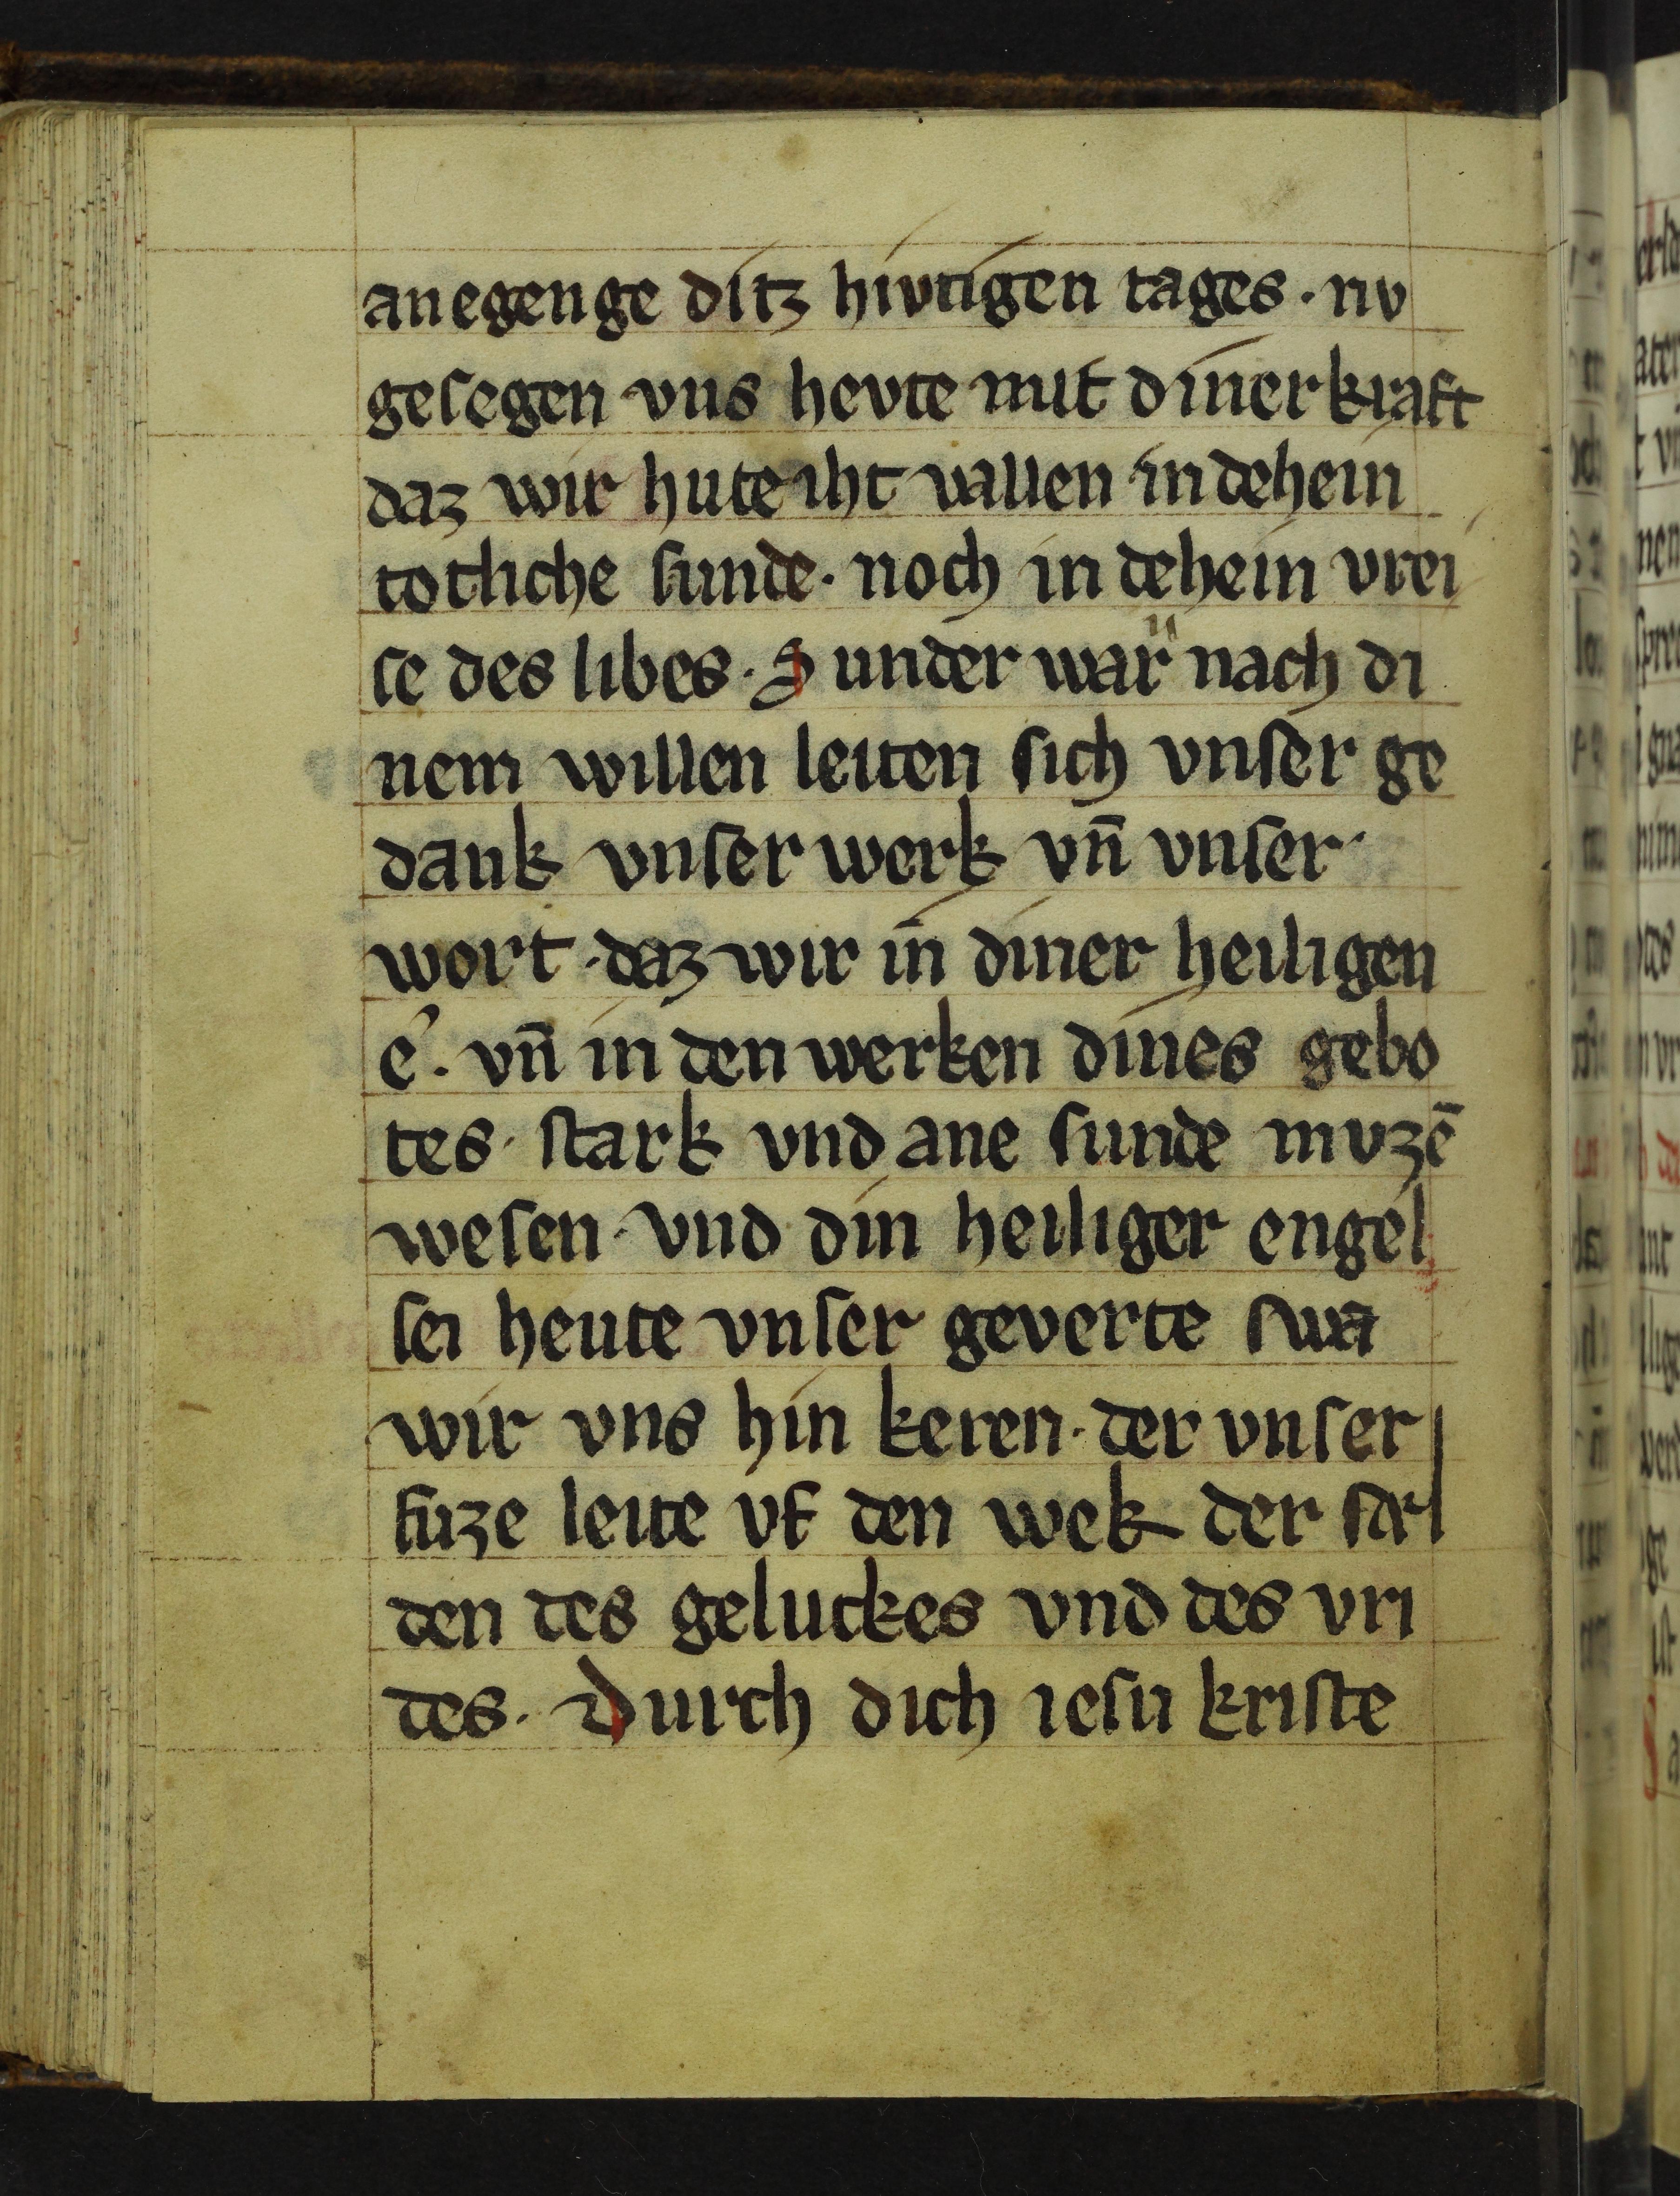 anegenge ditz hivtigen tages · nv
gesegen vns hevte mit diner kraft
daz wir hute iht vallen in dehein
totliche sunde · noch in dehein vrei
se des libes · Sunder war nach di
nem willen leiten sich vnser ge
dank vnser werk vn̄ vnser
wort · daz wir in diner heiligen
e · vn̄ in den werken dines gebo
tes · stark vnd ane sunde mvzē
wesen · vnd din heiliger engel
sei heute vnser geverte swa
wir vns hin keren · der vnser
fuze leite vf den wek der sæl
den des geluckes vnd des vri
des · Durch dich iesu kriste